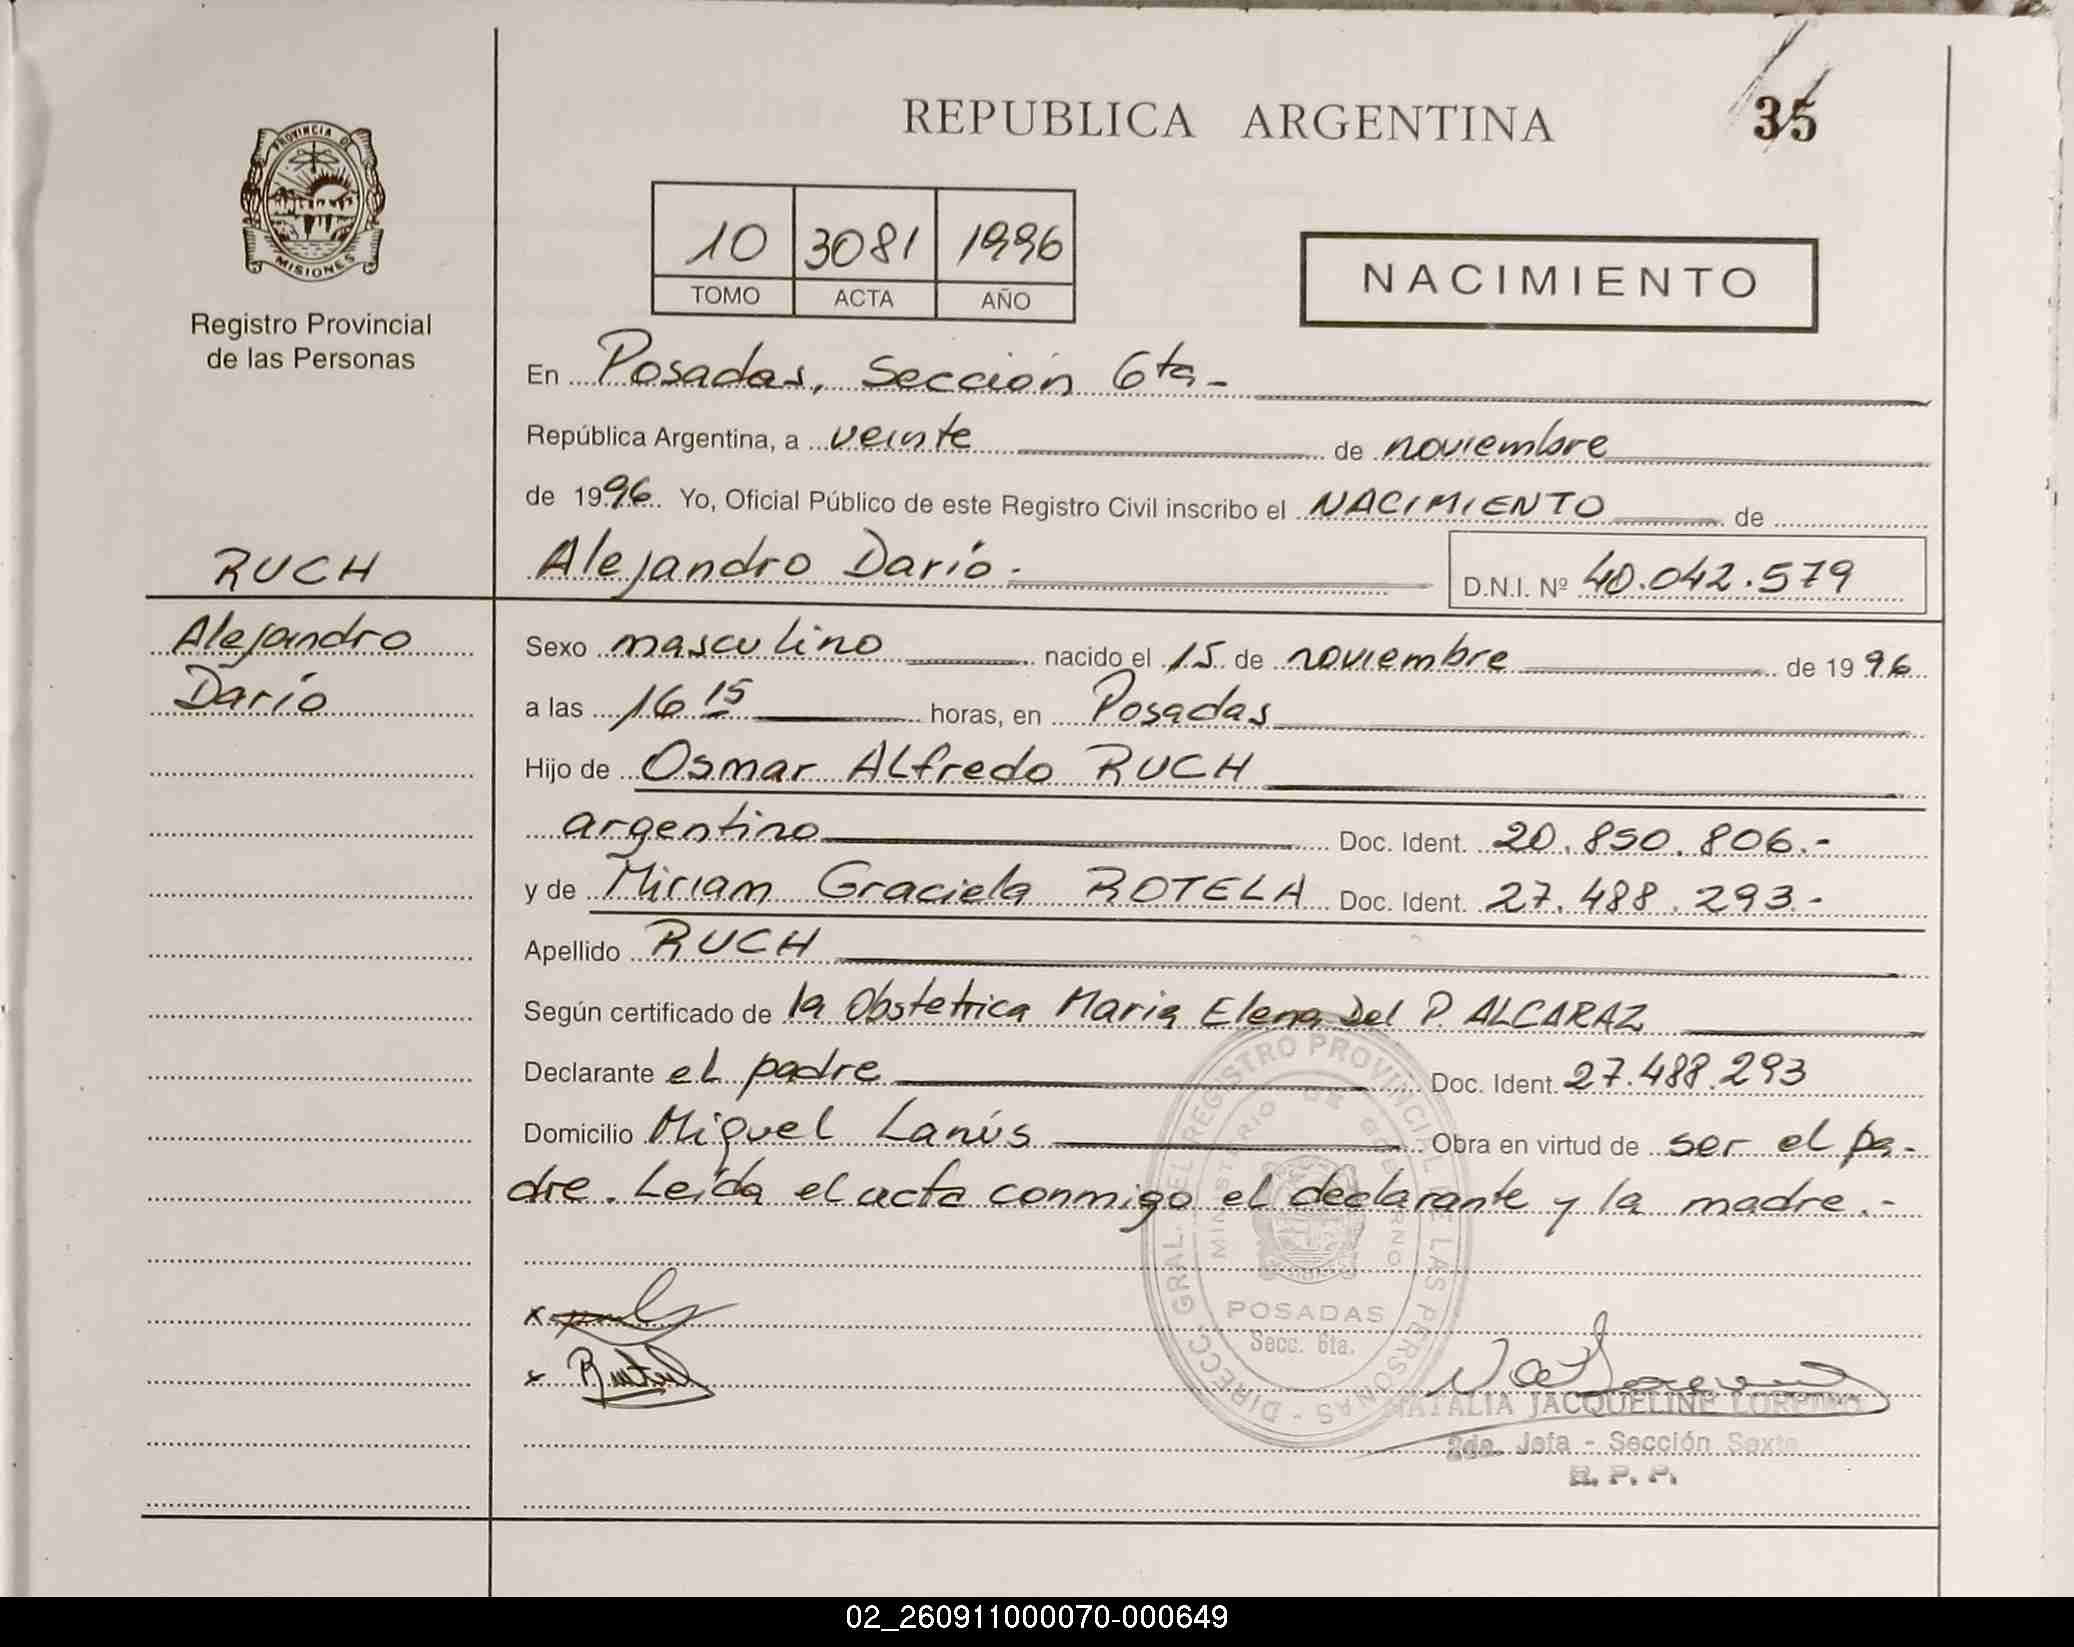 REPUBLICA ARGENTINA
35
PROVINCIA DE
MISIONES
Registro Provincial
de las Personas
10 3081 1996
TOMO ACTA AÑO
NACIMIENTO
En Posadas, Sección 6ta-
República Argentina, a veinte de noviembre
de 1996. Yo, Oficial Público de este Registro Civil inscribo el NACIMIENTO de
RUCH
Alejandro Darío.- D.N.I. Nº 40.042.579
Alejandro
Darío
Sexo masculino nacido el 15 de noviembre de 1996
a las 16 15 horas, en Posadas
Hijo de Osmar Alfredo RUCH
argentino Doc. Ident. 20.850.806.-
y de Miriam Graciela ROTELA Doc. Ident. 27.488.293.-
Apellido RUCH
Según certificado de la Obstetrica Maria Elena Del P. ALCARAZ
Declarante el padre Doc. Ident. 27.488.293
Domicilio Miguel Lanús Obra en virtud de ser el pa-
dre. Leída el acta conmigo el declarante y la madre.-
DIRECC. GRAL. DEL REGISTRO PROVINCIAL DE LAS PERSONAS
MINISTERIO DE GOBIERNO
POSADAS
Secc. 6ta.
x
x
NATALIA JACQUELINE
2da. Jefa - Sección Sexta
R. P. P.
02_260911000070-000649